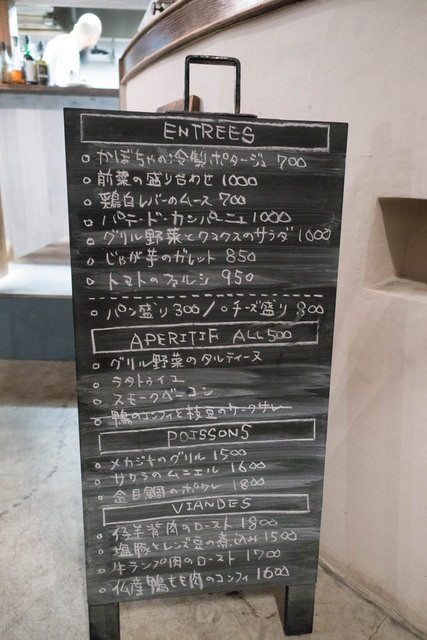 ENTREES
かぼちゃの冷製ポタージュ 700
前菜の盛り合わせ 1000
鶏白レバーのムース 700
パテ・ド・カンパーニュ 1000
グリル野菜とクスクスのサラダ 1000
じゃが芋のガレット 850
トマトのファルシ 950
パン盛り 300 / チーズ盛り 800
APERITIF ALL 500
グリル野菜のタルティーヌ
ラタトゥイユ
スモークベーコン
鴨のコンフィと枝豆のケークサレ
POISSONS
メカジキのグリル 1500
サクラのムニエル 1600
金目鯛のポワレ 1800
VIANDES
仔羊背肉のロースト 1800
塩豚とレンズ豆の煮込み 1500
牛ランプ肉のロースト 1700
仏産鴨もも肉のコンフィ 1600